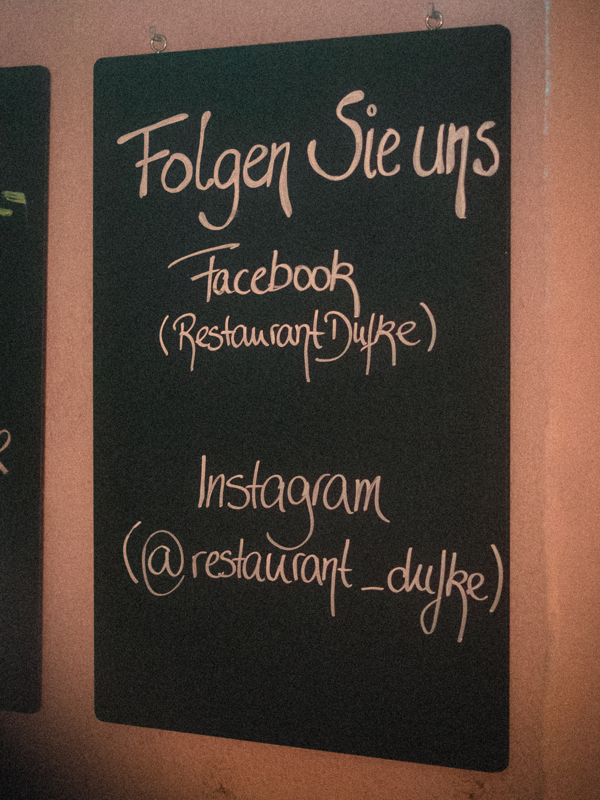 Folgen Sie uns
Facebook
(Restaurant Dufke)
Instagram
(@restaurant_dufke)